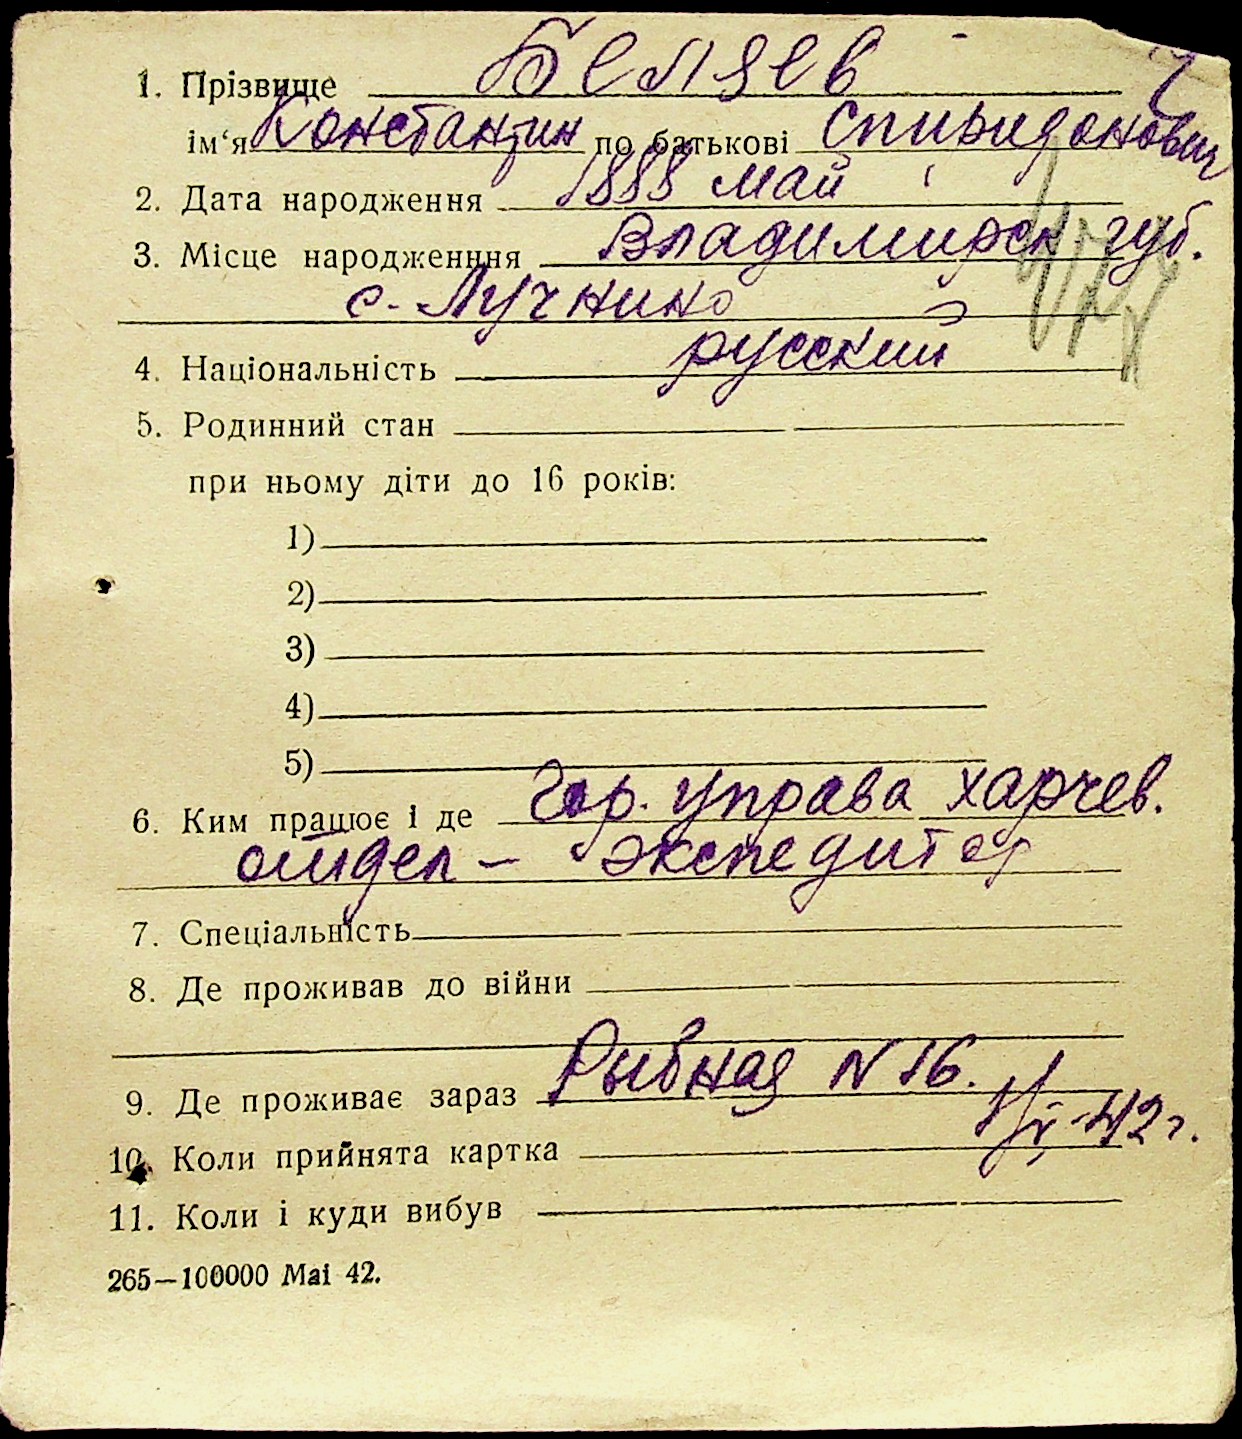 1. Прізвище Беляев
ім‘я Константин по батькові Спиридонович
2. Дата народження 1888 май
3. Місце народженння Владимирск губ.
с. Лучнико
4. Національність русский
5. Родинний стан
при ньому діти до 16 років:
1)
2)
3)
4)
5)
6. Ким працює і де Гор. управа харчев.
отдел – экспедитор
7. Спеціальність
8. Де проживав до війни
9. Де проживає зараз Рыбная N 16.
10. Коли прийнята картка 42 г.
11. Коли і куди вибув
265—100000 Mai 42.